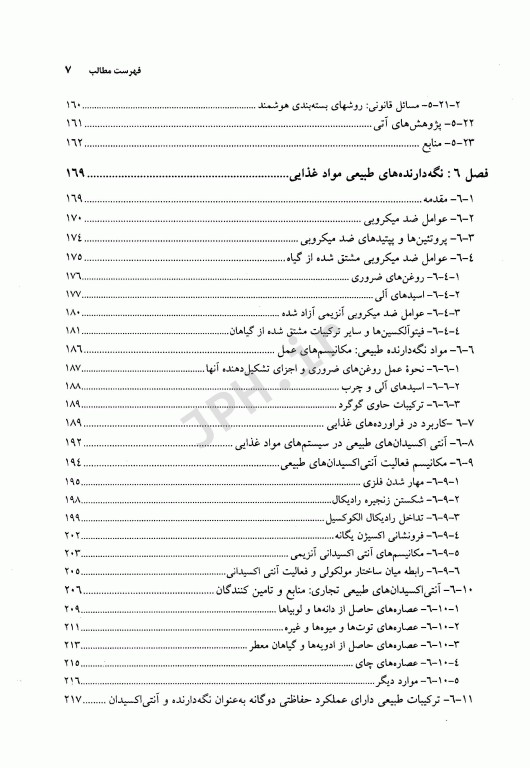 فهرست مطالب ۷
۵-۲۱-۲- مسائل قانونی: روشهای بسته‌بندی هوشمند ۱۶۰
۵-۲۲- پژوهش‌های آتی ۱۶۱
۵-۲۳- منابع ۱۶۲
فصل ۶ : نگه‌دارنده‌های طبیعی مواد غذایی ۱۶۹
۶-۱- مقدمه ۱۶۹
۶-۲- عوامل ضد میکروبی ۱۷۰
۶-۳- پروتئین‌ها و پپتیدهای ضد میکروبی ۱۷۴
۶-۴- عوامل ضد میکروبی مشتق شده از گیاه ۱۷۵
۶-۴-۱- روغن‌های ضروری ۱۷۶
۶-۴-۲- اسیدهای آلی ۱۷۷
۶-۴-۳- عوامل ضد میکروبی آنزیمی آزاد شده ۱۸۰
۶-۴-۴- فیتوآلکسین‌ها و سایر ترکیبات مشتق شده از گیاهان ۱۸۱
۶-۶- مواد نگه‌دارنده طبیعی: مکانیسم‌های عمل ۱۸۶
۶-۶-۱- نحوۀ عمل روغن‌های ضروری و اجزای تشکیل‌دهنده آنها ۱۸۷
۶-۶-۲- اسیدهای آلی و چرب ۱۸۸
۶-۶-۳- ترکیبات حاوی گوگرد ۱۸۹
۶-۷ -کاربرد در فراورده‌های غذایی ۱۸۹
۶-۸- آنتی اکسیدان‌های طبیعی در سیستم‌های مواد غذایی ۱۹۲
۶-۹- مکانیسم فعالیت آنتی‌اکسیدان‌های طبیعی ۱۹۴
۶-۹-۱- مهار شدن فلزی ۱۹۵
۶-۹-۲- شکستن زنجیره رادیکال ۱۹۸
۶-۹-۳- تداخل رادیکال الکوکسیل ۱۹۹
۶-۹-۴- فرونشانی اکسیژن یگانه ۲۰۲
۶-۹-۵- مکانیسم‌های آنتی اکسیدانی آنزیمی ۲۰۳
۶-۹-۶- رابطه میان ساختار مولکولی و فعالیت آنتی اکسیدانی ۲۰۵
۶-۱۰- آنتی‌اکسیدان‌های طبیعی تجاری: منابع و تامین کنندگان ۲۰۶
۶-۱۰-۱- عصاره‌های حاصل از دانه‌ها و لوبیاها ۲۰۹
۶-۱۰-۲- عصاره‌های توت‌ها و میوه‌ها و غیره ۲۱۱
۶-۱۰-۳- عصاره‌های حاصل از ادویه‌ها و گیاهان معطر ۲۱۳
۶-۱۰-۴- عصاره‌های چای ۲۱۵
۶-۱۰-۵- موارد دیگر ۲۱۶
۶-۱۱- ترکیبات طبیعی دارای عملکرد حفاظتی دوگانه به‌عنوان نگه‌دارنده و آنتی‌اکسیدان ۲۱۷
JPH.ir